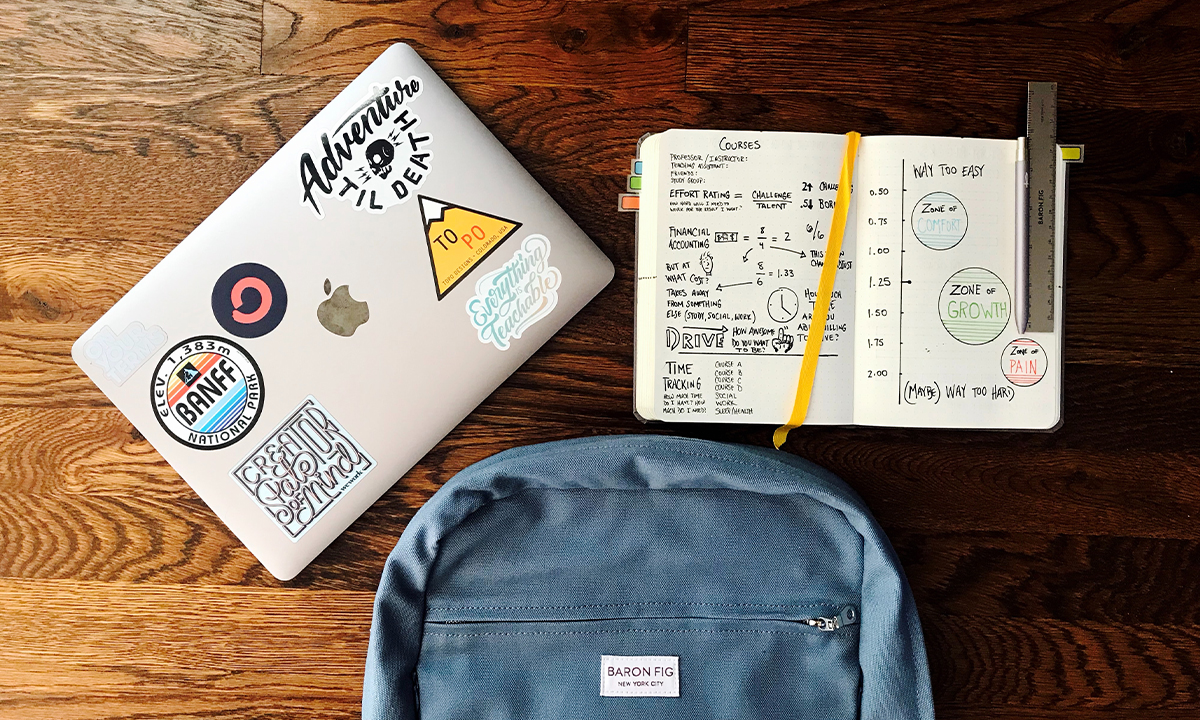 Adventure
'TIL DEATH
TO
PO
TOPO DESIGNS - COLORADO, USA
Everything
is
Teachable
ELEV. 1,383m
BANFF
NATIONAL PARK
CREATOR
State
of Mind
wework
COURSES
PROFESSOR / INSTRUCTOR:
TEACHING ASSISTANT:
FRIENDS:
STUDY GROUP:
EFFORT RATING = CHALLENGE
TALENT
2↑
.5↓
FINANCIAL
ACCOUNTING
8
4
= 2
6/6
BUT AT
WHAT COST?
8
6
= 1.33
THIS
CHAN
TAKES AWAY
FROM SOMETHING
ELSE (STUDY, SOCIAL, WORK)
HOW
ARE
DRIVE
HOW AWESOME
DO YOU WANT
TO BE?
TIME
TRACKING
HOW MUCH TIME
DO I HAVE? HOW
MUCH DO I NEED?
COURSE A
COURSE B
COURSE C
COURSE D
SOCIAL
WORK
SLEEP/HEALTH
WAY TOO EASY
0.50
0.75
1.00
1.25
1.50
1.75
2.00
ZONE OF
COMFORT
ZONE OF
GROWTH
ZONE OF
PAIN
(MAYBE) WAY TOO HARD
BARON FIG
BARON FIG
NEW YORK CITY